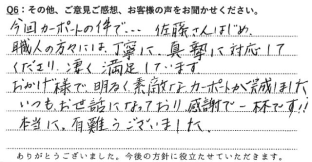 Q6：その他、ご意見ご感想、お客様の声をお聞かせください。
今回カーポートの件で… 佐藤さんはじめ、
職人の方々には、丁寧に、真摯に対応して
くださり、凄く満足しています。
おかげ様で、明るく素敵なカーポートが完成しました
いつもお世話になっており感謝で一杯です!!
本当に。有難うございました。
ありがとうございました。今後の方針に役立たせていただきます。